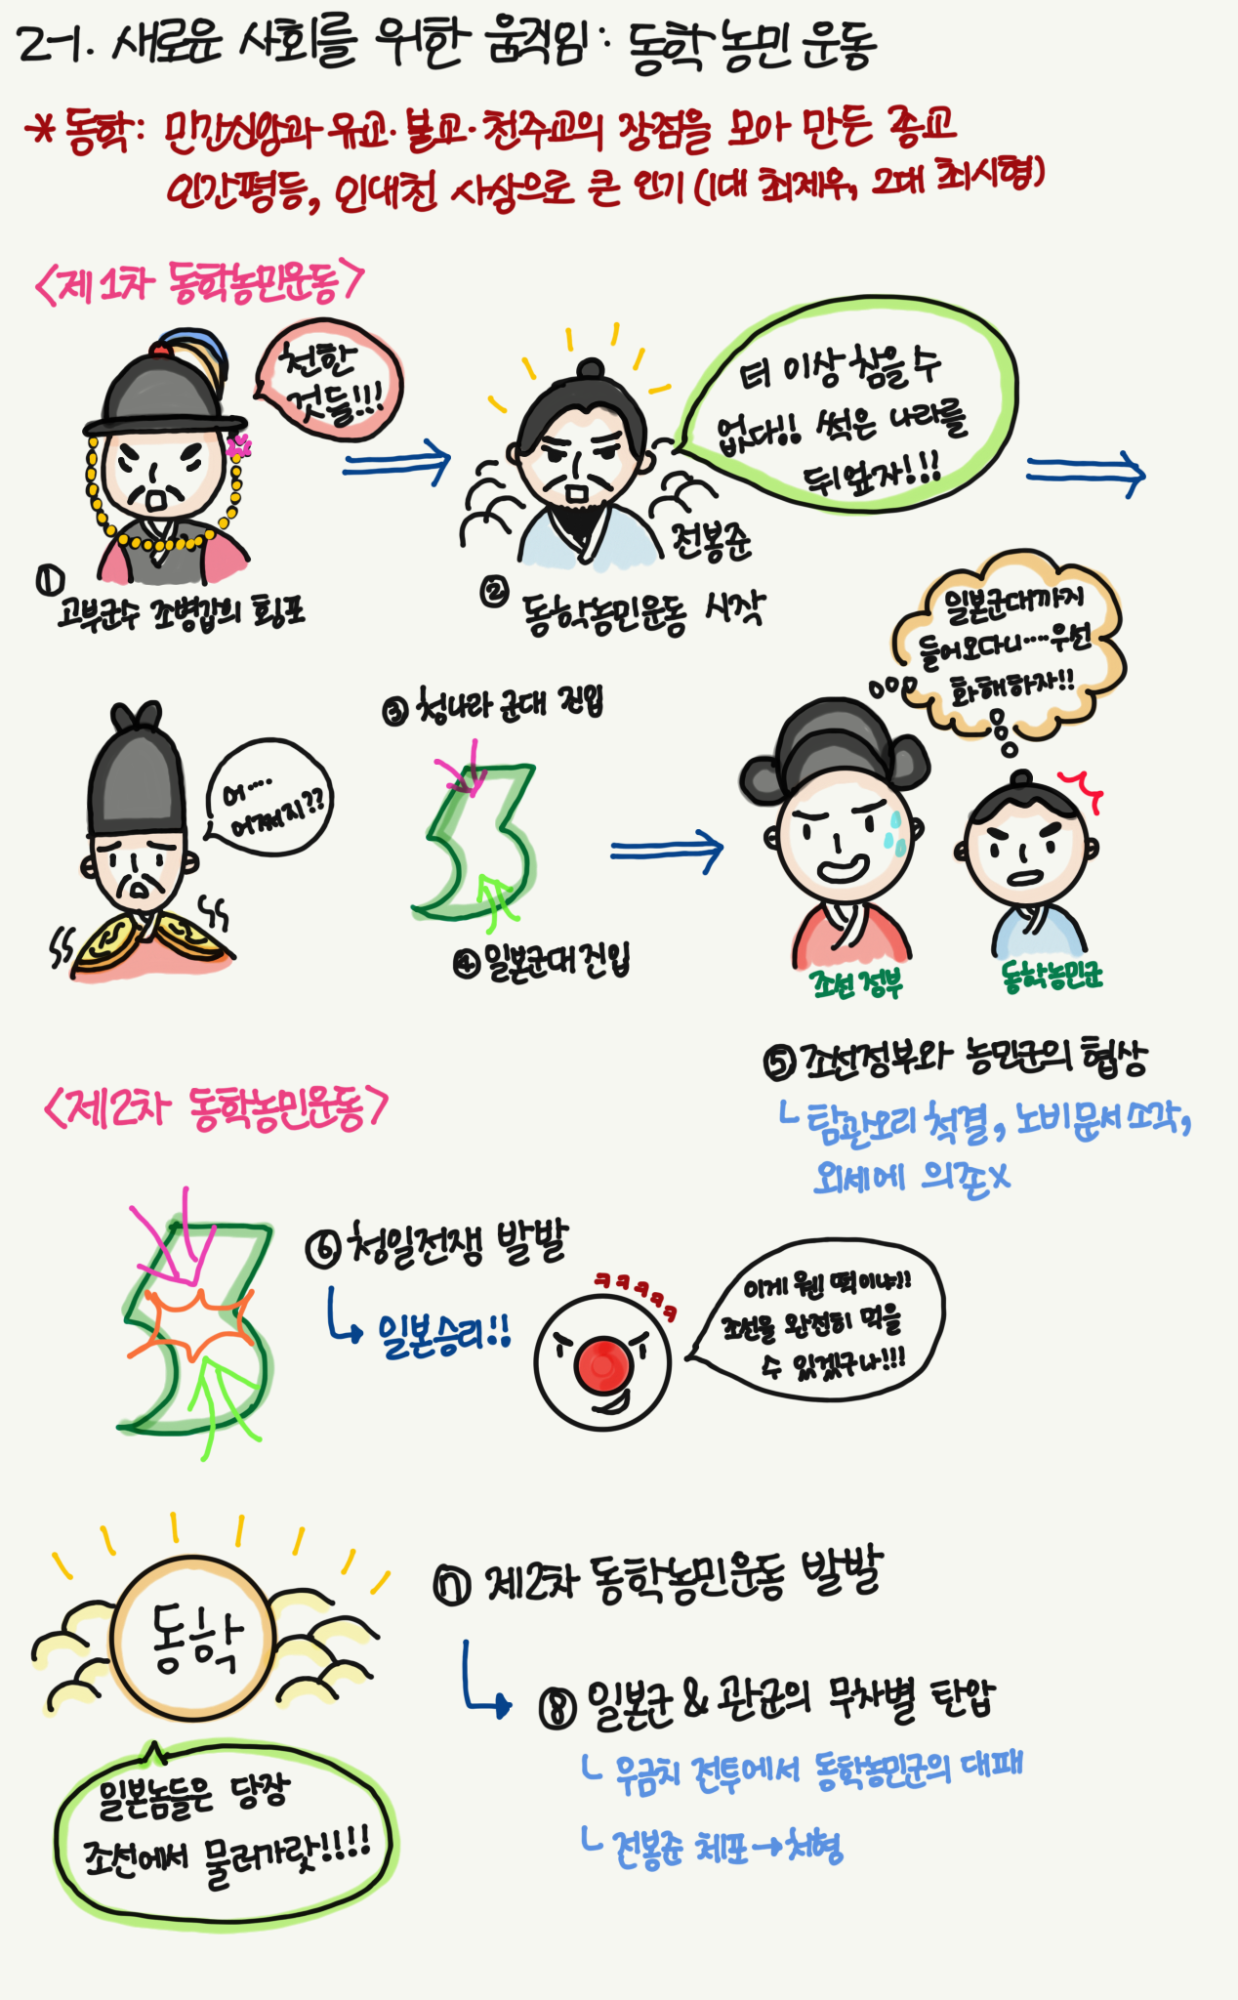 2-1. 새로운 사회를 위한 움직임: 동학 농민 운동
* 동학: 민간신앙과 유교·불교·천주교의 장점을 모아 만든 종교
인간평등, 인내천 사상으로 큰 인기 (1대 최제우, 2대 최시형)
<제1차 동학농민운동>
천한
것들!!!
더 이상 참을 수
없다!! 썩은 나라를
뒤엎자!!!
전봉준
① 고부군수 조병갑의 횡포
② 동학농민운동 시작
어....
어쩌지??
③ 청나라 군대 진입
④ 일본군대 진입
일본군대까지
들어오다니.... 우선
화해하자!!
조선 정부
동학농민군
⑤ 조선정부와 농민군의 협상
탐관오리 척결, 노비문서 소각,
외세에 의존X
<제2차 동학농민운동>
⑥ 청일전쟁 발발
일본승리!!
ㅋㅋㅋㅋㅋ
이게 웬 떡이냐!!
조선을 완전히 먹을
수 있겠구나!!!
동학
일본놈들은 당장
조선에서 물러가랏!!!!
⑦ 제2차 동학농민운동 발발
⑧ 일본군 & 관군의 무차별 탄압
우금치 전투에서 동학농민군의 대패
전봉준 체포→처형